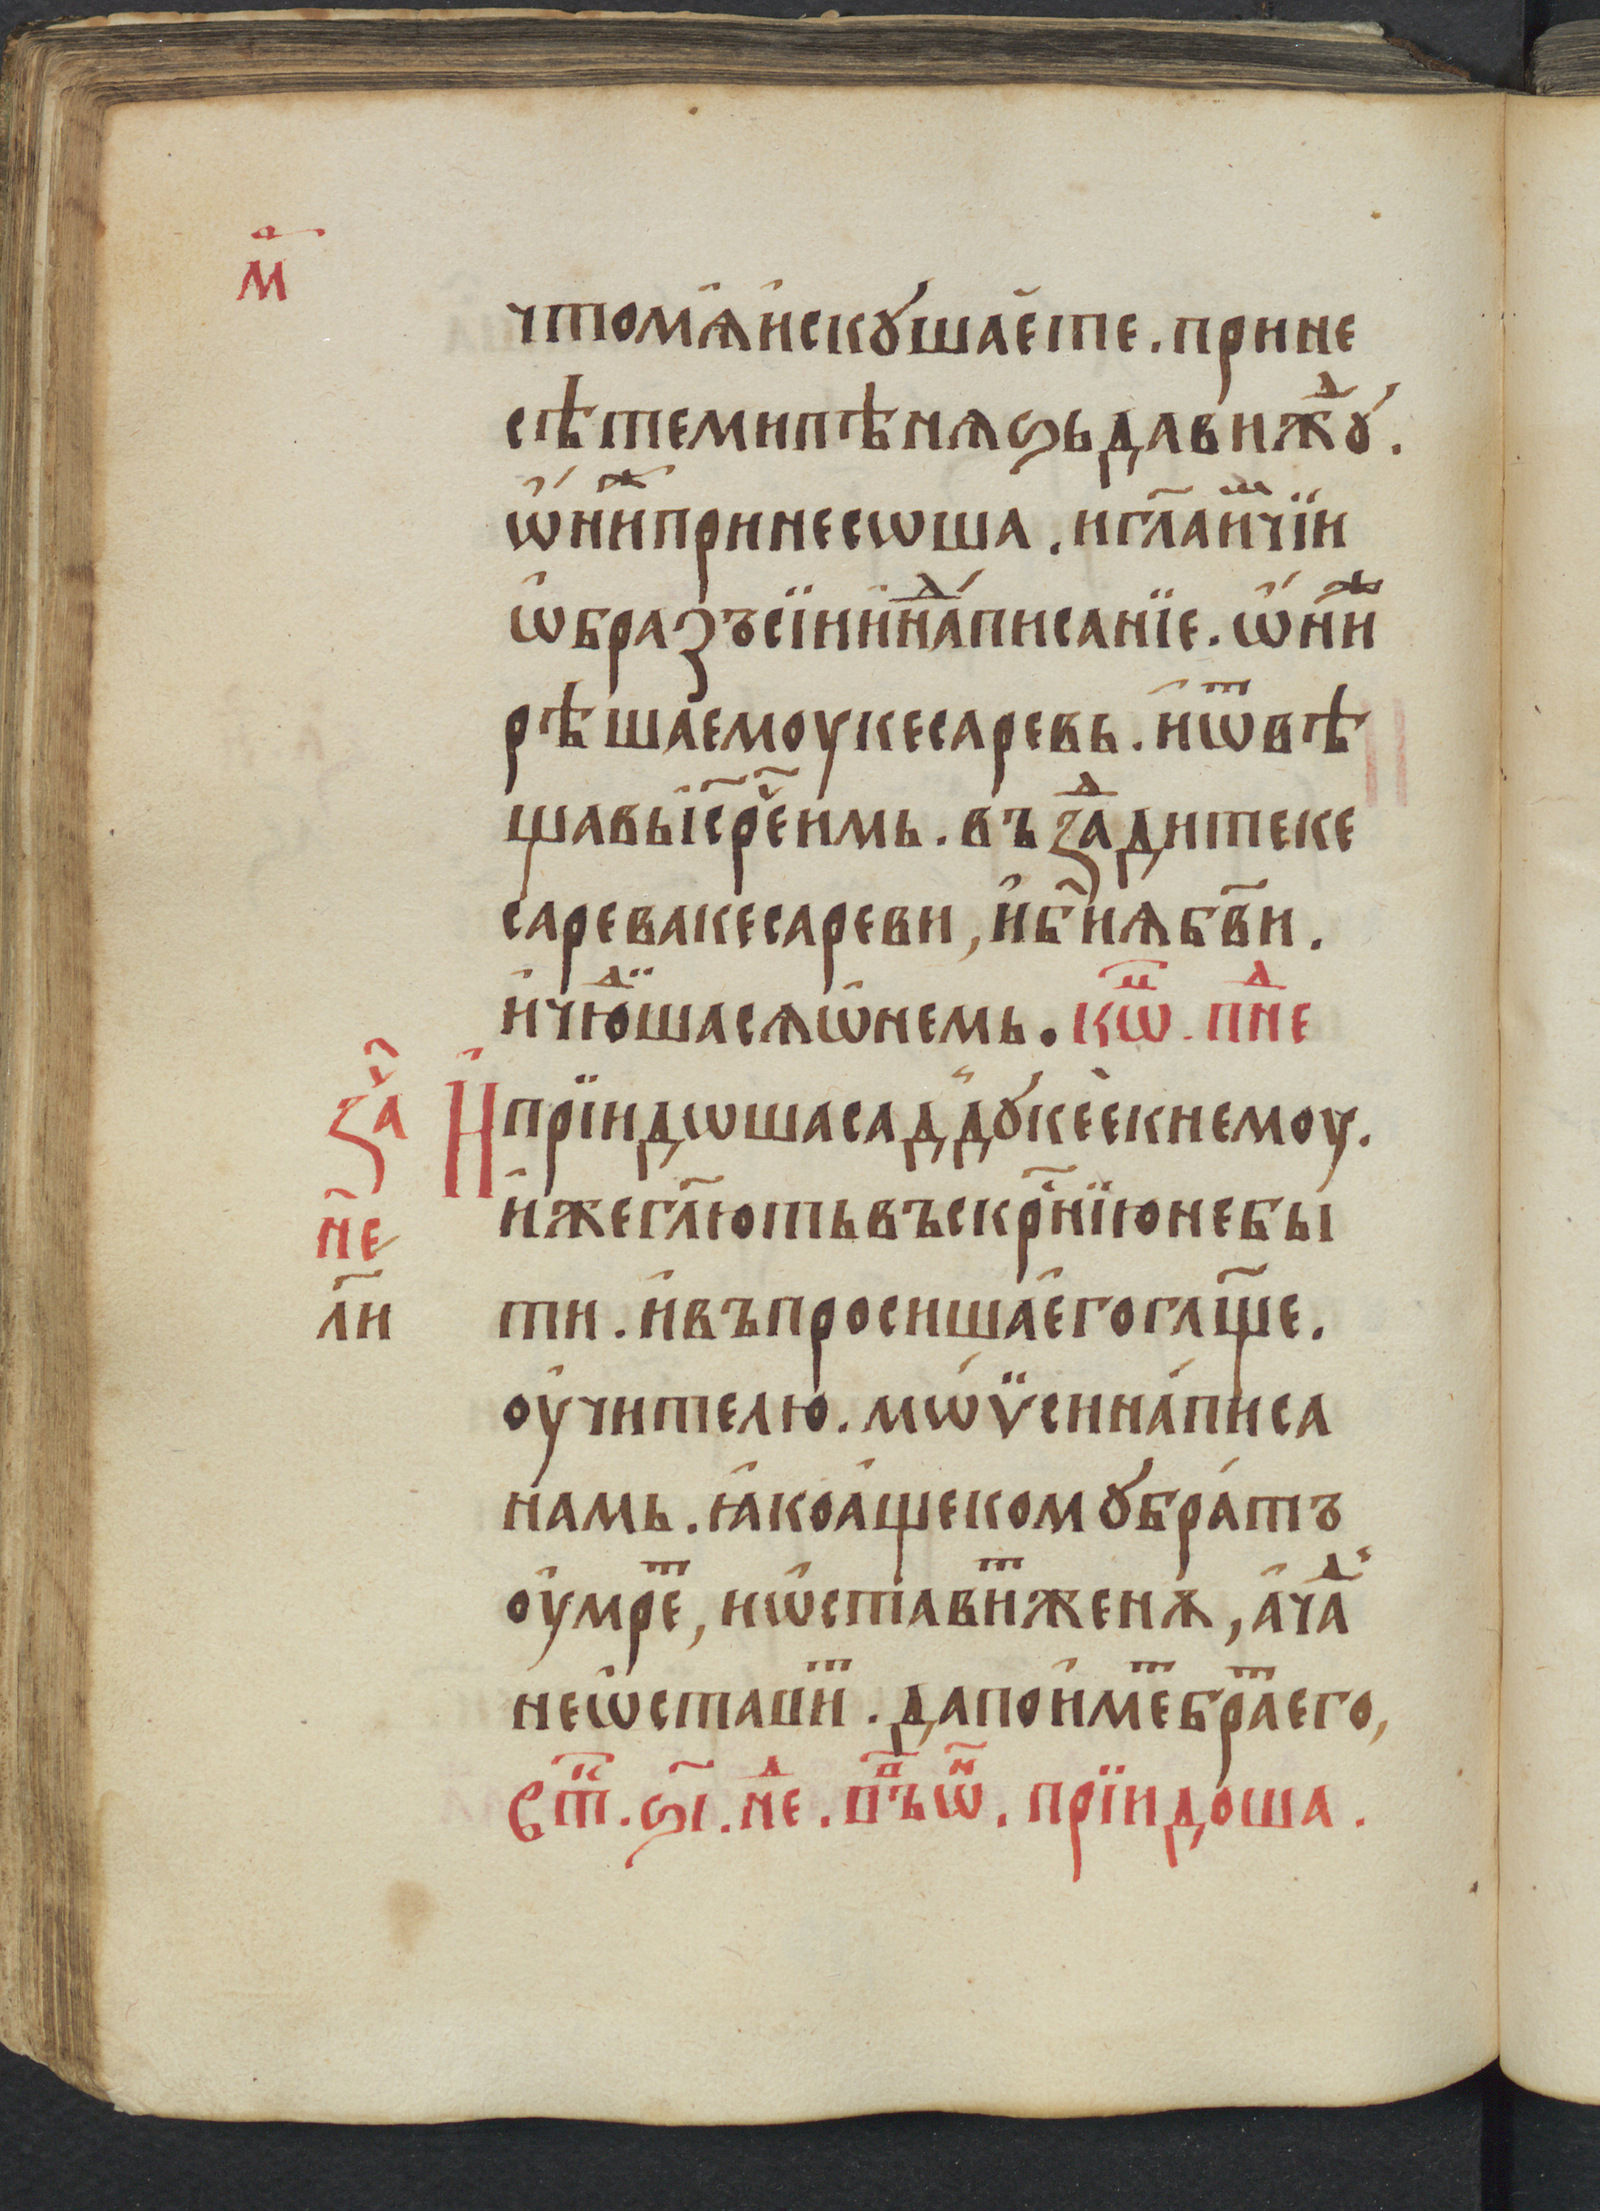 м҃
что мѧ̀ и҆скꙋша́ете . прине
сѣте ми пѣнѧѕь да виждꙋ́ .
ѡ҆ниⷤ принесѡша . и гл҃а иⷨ чїи
ѡ҆бразъ сїи и наⷣписанїе . ѡ҆ниⷤ
рѣша емоу кесаревь . и҆ ѿвѣ
щавь і҆с҃ рече̑ имь . въꙁаⷣдите ке
сарева кесареви , и҆ бж҃иꙗ бг҃ви .
и҆ чюⷣишасѧ ѡ҆ немь . коⷩ҇ . пⷪ҇неⷣ
зⷱ҇а
И҆ прїидѡша саддꙋке́е к немоу .
не
и҆же гл҃ють въскрⷭ҇нїю не бы
ли
ти . и҆ въпросиша е҆го гл҃ще .
оу҆чителю . мѡѷси написа
намь . ꙗ҆ко а҆ще комꙋ бра́тъ
оу҆мреⷮ , и ѡ҆ставиⷮ женѧ̀ , а҆ чаⷣ
не ѡ҆ставиⷮ . да пои҆меⷮ браⷮ его ,
Єⷢ҇ . ѕ҃і . неⷣ . пⷪ҇ ъⷩ҇ . прїидоша .